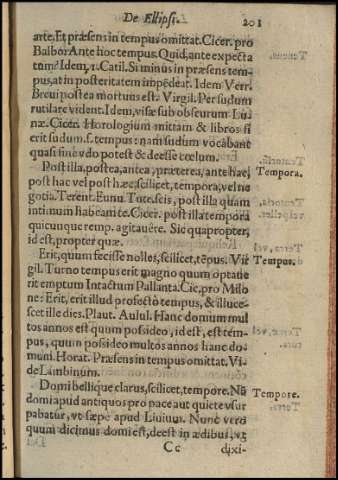 De Ellipsi. 201
arte. Et præsens in tempus omittat. Cicer. pro
Balbo: Ante hoc tempus. Quid, ante expecta
tum? Idem, 1. Catil. Si minus in præsens tem-
pus, at in posteritatem impēdeat. Idem Verr.
Brevi postea mortuus est. Virgil. Per sudum
rutilare vident. Idem, visæ sub obscurum Lu-
næ. Cicer. Horologium mittam & libros si
erit sudum. s. tempus: nam sudum vocabant
quasi sine vdo potest & deesse cœlum.
Post illa, postea, antea, præterea, ante hæc, Tempora.
post hæc vel post hæc, scilicet, tempora, vel ne
gotia. Terent. Eunu. Tute scis, post illa quam
intimum habeam te. Cicer. post illa tempora
quicunque remp. agitauêre. Sic quapropter,
id est, propter quæ.
Erit, quum fecisse nolles, scilicet, tēpus. Vir Tempus.
gil. Turno tempus erit magno quum optaue
rit emptum Intactum Pallanta. Cic. pro Milo
ne: Erit, erit illud profectò tempus, & illuce-
scet ille dies. Plaut. Aulul. Hanc domum mul
tos annos est quum possideo, id est, est tem-
pus, quum possideo multos annos hanc do-
mum. Horat. Præsens in tempus omittat. Vi-
de Lambinum.
Domi bellique clarus, scilicet, tempore. Nā Tempore.
domi apud antiquos pro pace aut quiete vsur
pabatur, vt sæpe apud Liuium. Nunc vero
quum dicimus domi est, deest in ædibus, vt
Cc dixi-